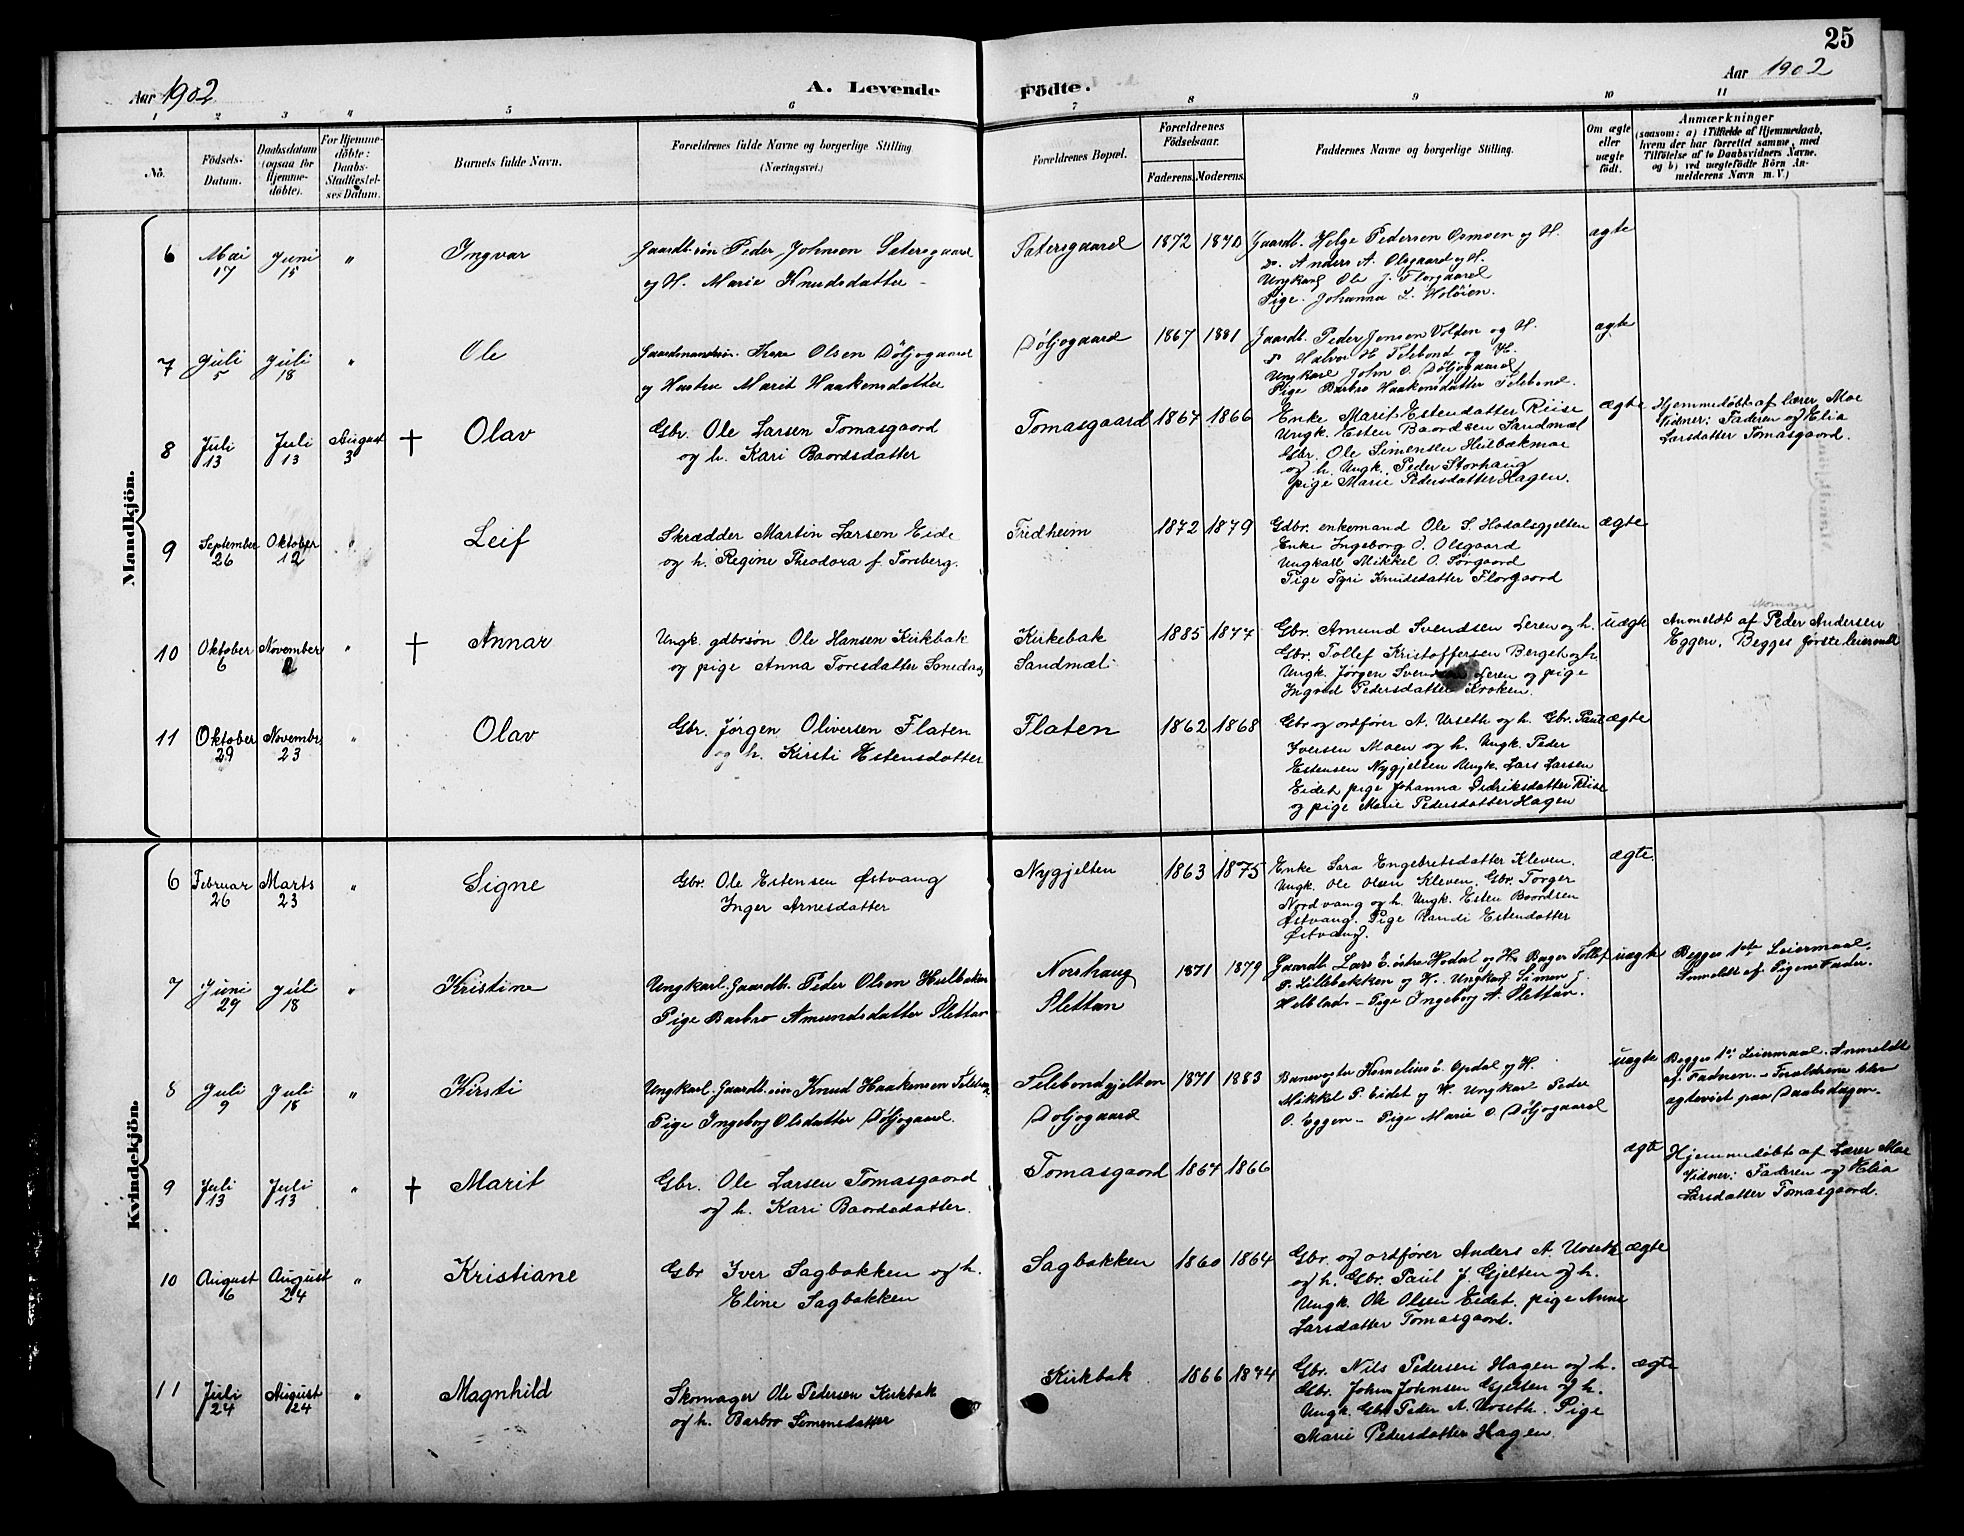 25
Aar 1902
A. Levende
Födte.
Aar 1902
1 2 3 4 5 6 7 8 9 10 11
No.
Födsels-Datum.
Daabsdatum (ogsaa for Hjemmedöbte).
For Hjemmedöbte: Daabs-Stadfæstelses Datum.
Barnets fulde Navn.
Forældrenes fulde Navne og borgerlige Stilling (Næringsvei.)
Forældrenes Bopæl.
Forældrenes Födselsaar.
Faderens. Moderens.
Faddernes Navne og borgerlige Stilling.
Om ægte eller uægte födt.
Anmærkninger
(saasom: a) i Tilfælde af Hjemmedaab, hvem der har forrettet samme, med Tilföielse af to Daabsvidners Navne, og b) ved uægtefödte Börn Anmelderens Navn m. V.)
Mandkjön.
6 Mai 17 Juni 15 " Ingvar
Gaardb.søn Peder Johnsen Satersgaard
og H. Marie Knudsdatter
Satersgaard 1872
Gaardb. Helge Pedersen Osmoen og H.
Do. Anders A. Olsgaard og H.
Ungkarl Ole J. Florgaard
Pige Johanna L. Holöien.
ægte
7 Juli 5 Juli 18 " Ole
Olsen Döljogaard
og Hustru Marit Haakensdatter
Döljogaard 1867 1881
Gaardb. Peder Jensen Volden og H.
Do Halvor H. Telebond og H.
Ungkarl John O. Döljogaard
Pige Barbro Haakensdatter Telebond.
ægte
8 Juli 13 Juli 13 August 3 † Olav
Gbr. Ole Larsen Tomasgaard
og h. Kari Baardsdatter
Tomasgaard 1864 1866
Enke Marit Estendatter Riise
Ungk. Esten Baardsen Sandmæl
Gbr. Ole Simensen Hulbækmoe
og h. Ungk. Peder Storhaug
pige Marie Pedersdatter Hagen.
ægte
Hjemmedøbt af lærer Moe
Vidner: Faderen og Elia
Larsdatter Tomasgaard.
9 September 26 Oktober 12 " Leif
Skrædder Martin Larsen Eide
og h. Regine Theodora f. Torsberg.
Fridheim 1872 1879
Gdbr. enkemand Ole S. Hodalsgjelten
Enke Ingeborg O. Olsgaard
Ungkarl Mikkel O. Sorgaard
Pige Igri Knudsdatter Florgaard
ægte
10 Oktober 6 November 2 " † Annar
Ungk. gdbrsøn Ole Hansen Kirkbak
og pige Anna Toresdatter Smedaas
Kirkebak
Sandmæl
1885 1877
Gbr. Amund Svendsen Leren og h.
Gbr. Tollef Kristoffersen Berget og h.
Ungk. Jørgen Svendsen Leren og pige
Ingrid Pedersdatter Kroken.
uægte
Anmeldt af Peder Andersen
Eggen. Begges første leiermaal
11 Oktober 29 November 23 " Olav
Gbr. Jørgen Oliversen Flaten
og h. Kirsti Estensdatter
Flaten 1862 1868
Gbr og ordfører A. Urseth og h. Gbr. Paul
Iversen Moen og h. Ungk. Peder
Estensen Nygjelten Ungk. Lars Larsen
Eidet pige Johanna Didriksdatter Riise
og pige Marie Pedersdatter Hagen
ægte
Kvindekjön.
6 Februar 26 Marts 23 " Signe
Gbr. Ole Estensen Østvang
Inger Arnesdatter
Nygjelten 1863 1875
Enke Sara Engebretsdatter Kleven.
Ungk. Ole Olsen Kleven. Gbr. Torger
Nordvang og h. Ungk. Esten Baardsen
Østvang. Pige Randi Estendatter
Østvang.
ægte.
7 Juni 29 Juli 18 " Kristine
Ungkarl Gaardb. Peder Olsen Hulbakken
Pige Barbro Amundsdatter Slettan
Norshaug
Slettan
1871 1879
Gaardb. Lars E. östre Hodal og H. Bager Tollef
P. Lillebakken og H. Ungkarl Simen J.
Helblad – Pige Ingeborg A. Slettan.
uægte
Begges 1ste Leiermaal.
Anmeldt af Pigens Fader.
8 Juli 9 Juli 18 " Kirsti
Ungkarl Gaardb.søn Knud Haakensen Telebond
Pige Ingeborg Olsdatter Döljogaard.
Telebondgjelten
Döljogaard
1871 1883
Banevogter Kornelius E. Opdal og H.
Mikkel P. Eidet og H. Ungkarl Peder
O. Eggen – Pige Marie O. Döljogaard
uægte
Begges 1ste Leiermaal. Anmeldt
af Faderen. – Forældrene blev
ægteviet paa Daabsdagen.
9 Juli 13 Juli 13 " † Marit
Gbr. Ole Larsen Tomasgaard
og h. Kari Baardsdatter.
Tomasgaard 1864 1866
ægte
Hjemmedøbt af Lærer Moe
Vidner: Faderen og Elia
Larsdatter Tomasgaard.
10 August 6 August 24 " Kristiane
Gbr Iver Sagbakken og h.
Eline Sagbakken
Sagbakken 1860 1864
Gbr og ordfører Anders A. Urseth
og h. Gbr. Paul J. Gjelten og h.
Ungk. Ole Olsen Eidet. pige Anne
Larsdatter Tomasgaard.
ægte
11 Juli 24 August 24 " Magnhild
Skomager Ole Pedersen Kirkbak
og h. Barbro Simensdatter
Kirkbak 1866 1874
Gbr. Nils Pedersen Hagen og h.
Gbr. John Johnsen Gjelten og h.
Ungk. Gbr Peder A. Urseth. Pige
Marie Pedersdatter Hagen.
ægte